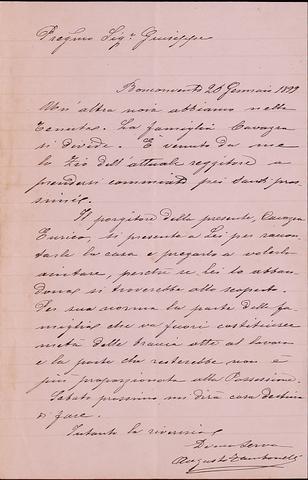 Pregmo Sigr. Giuseppe
Buonconvento 26 Gennaio 1899
Un'altra noia abbiamo nella
Tenuta. La famiglia Cavazza
si divide. È venuto da me
lo Zio dell'attuale reggitore a
prendersi commiato pei Santi pros
simi.
Il porgitore della presente, Cavazza
Enrico, si presenta a Lei per raccon
tarle la cosa e pregarlo a volerlo
aiutare, perchè se Lei lo abban
dona si troverebbe allo scoperto.
Per sua norma la parte della fa
miglia che va fuori costituisce
metà delle braccia atte al lavoro
e la parte che resterebbe non è
più proporzionata alla Possessione.
Sabato prossimo mi dirà cosa destina
di fare.
Intanto la riverisco
Devmo Servo
Augusto Zamboni